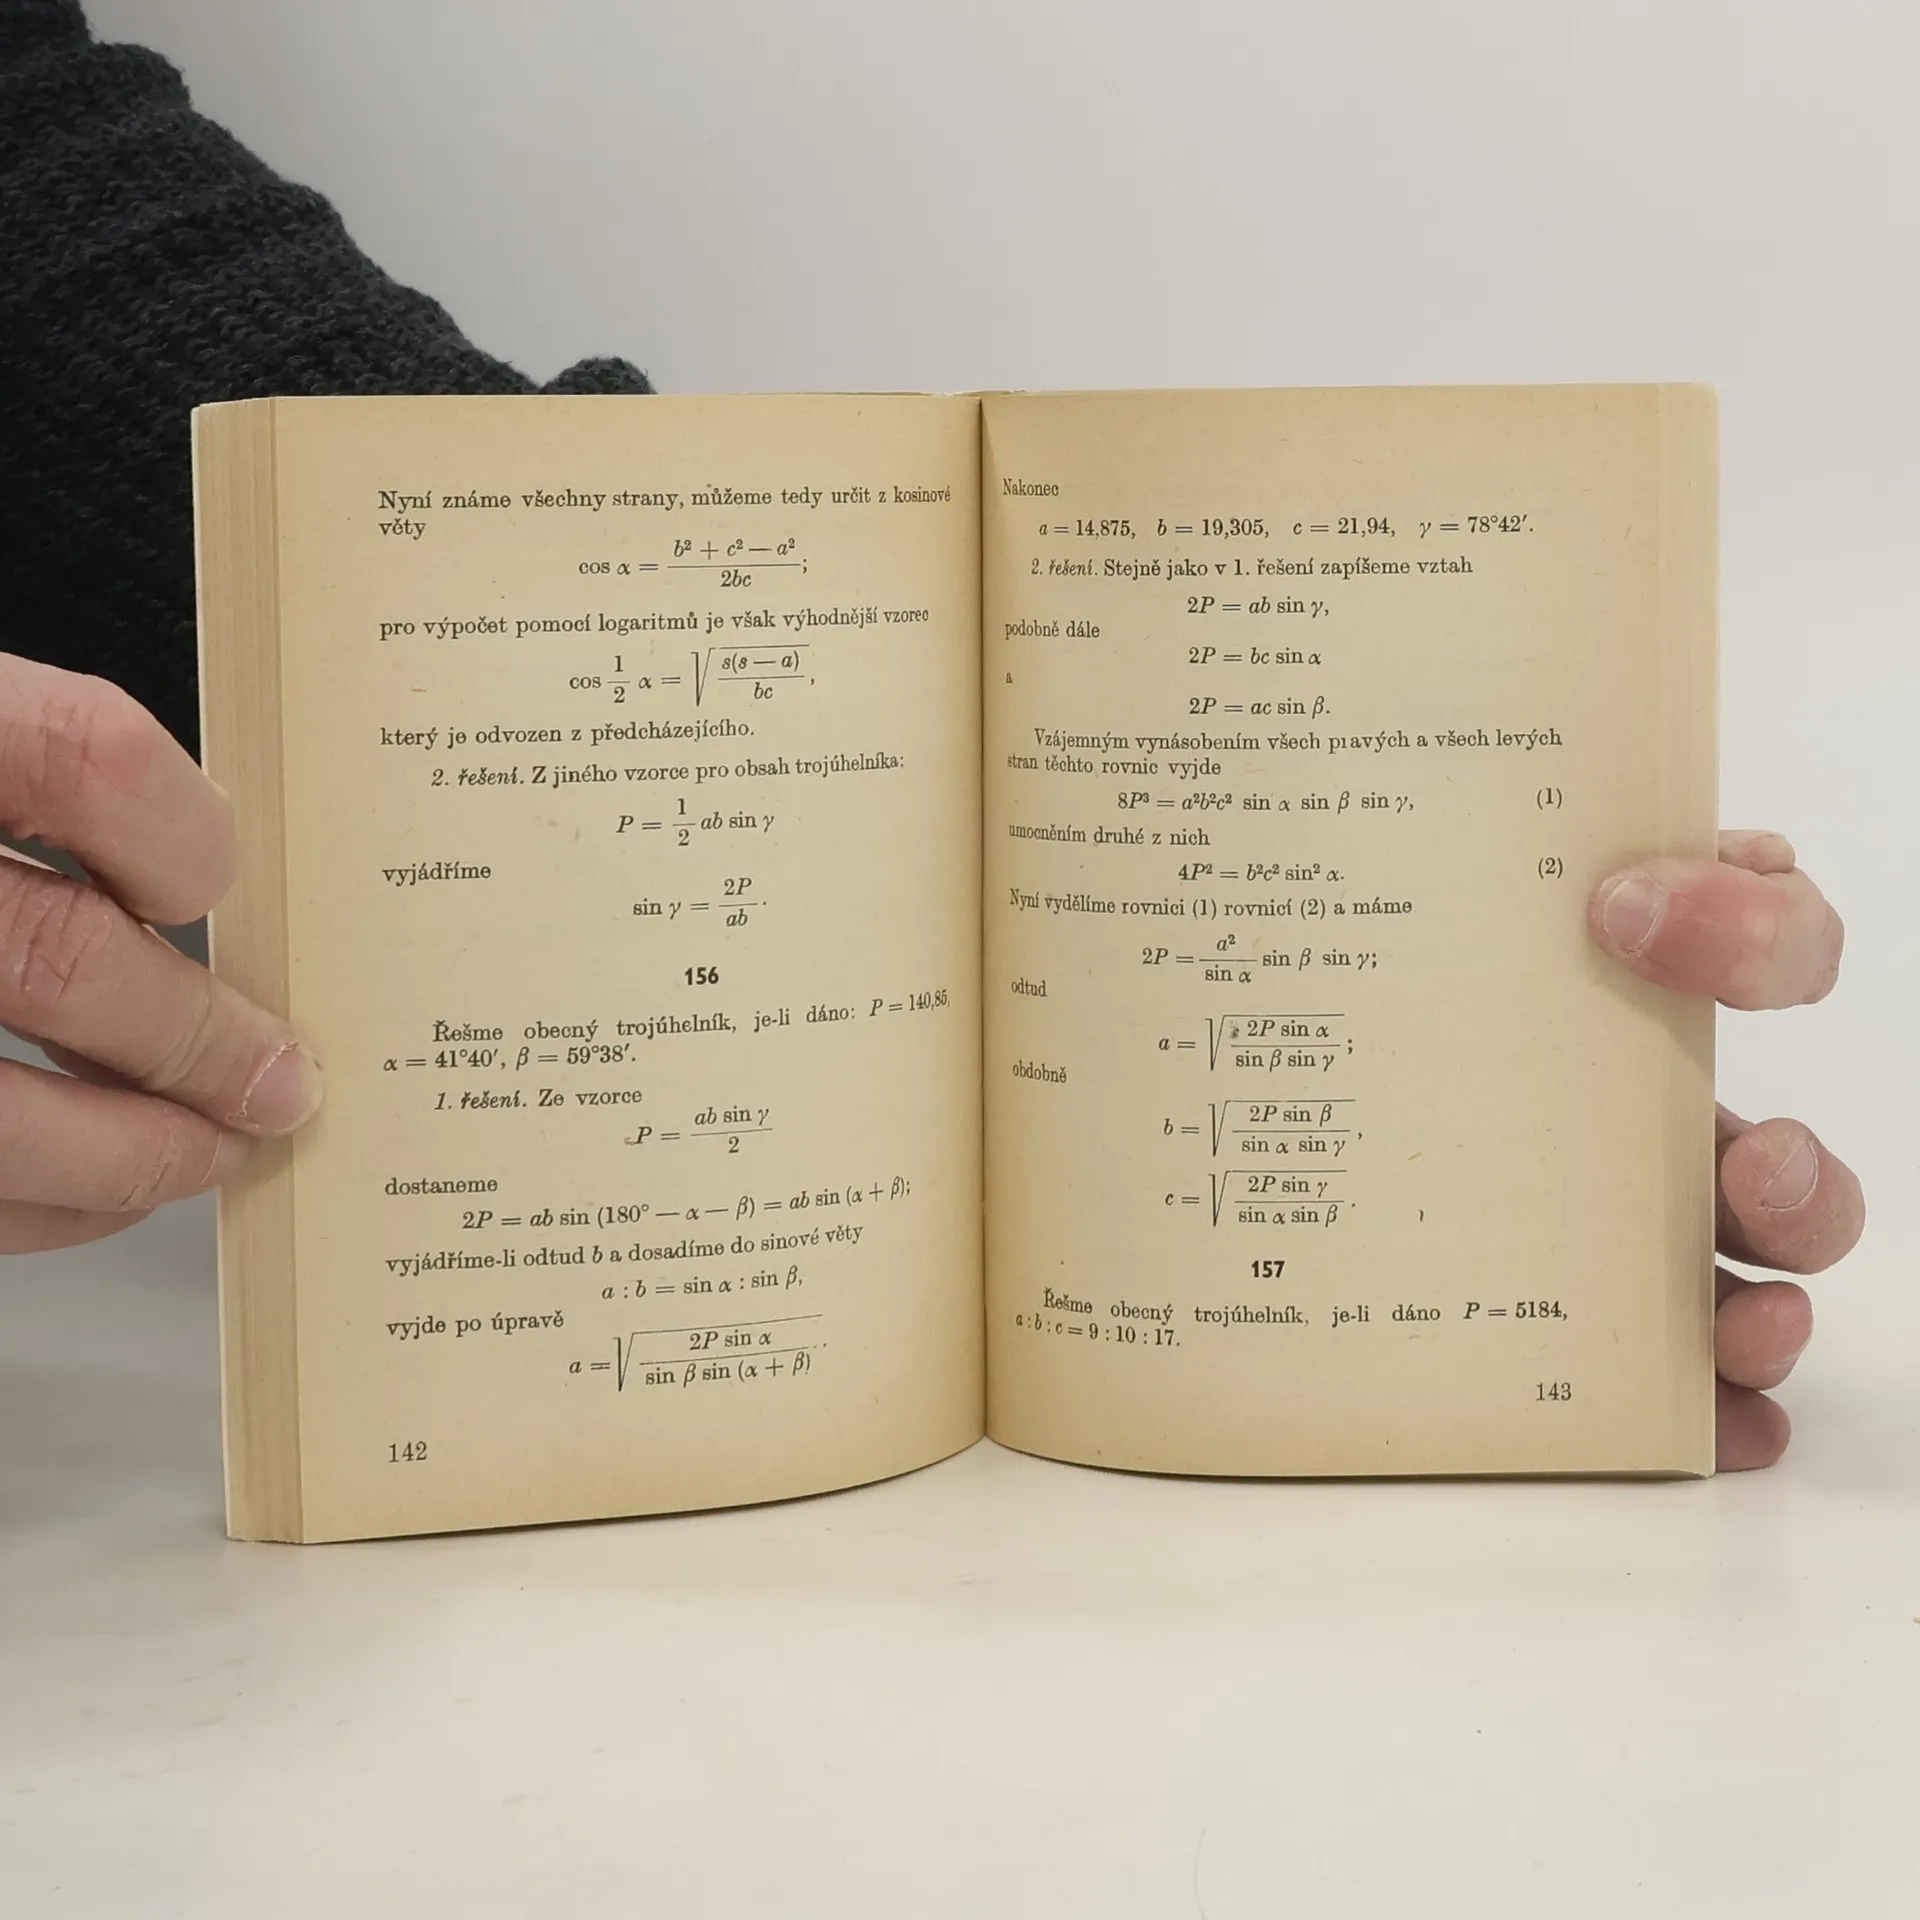 Nyní známe všechny strany, můžeme tedy určit z kosinové
věty
cos α = (b² + c² — a²) / 2bc;
pro výpočet pomocí logaritmů je však výhodnější vzorec
cos 1/2 α = √(s(s — a) / bc),
který je odvozen z předcházejícího.
2. řešení. Z jiného vzorce pro obsah trojúhelníka:
P = 1/2 ab sin γ
vyjádříme
sin γ = 2P / ab.
156
Řešme obecný trojúhelník, je-li dáno: P = 140,85,
α = 41°40′, β = 59°38′.
1. řešení. Ze vzorce
P = ab sin γ / 2
dostaneme
2P = ab sin (180° — α — β) = ab sin (α + β);
vyjádříme-li odtud b a dosadíme do sinové věty
a : b = sin α : sin β,
vyjde po úpravě
a = √(2P sin α / sin β sin (α + β)).
142
Nakonec
a = 14,875, b = 19,305, c = 21,94, γ = 78°42′.
2. řešení. Stejně jako v 1. řešení zapíšeme vztah
2P = ab sin γ,
podobně dále
2P = bc sin α
a
2P = ac sin β.
Vzájemným vynásobením všech pravých a všech levých
stran těchto rovnic vyjde
8P³ = a²b²c² sin α sin β sin γ, (1)
umocněním druhé z nich
4P² = b²c² sin² α. (2)
Nyní vydělíme rovnici (1) rovnicí (2) a máme
2P = a² / sin α sin β sin γ;
odtud
a = √(2P sin α / sin β sin γ);
obdobně
b = √(2P sin β / sin α sin γ),
c = √(2P sin γ / sin α sin β).
157
Řešme obecný trojúhelník, je-li dáno P = 5184,
a : b : c = 9 : 10 : 17.
143